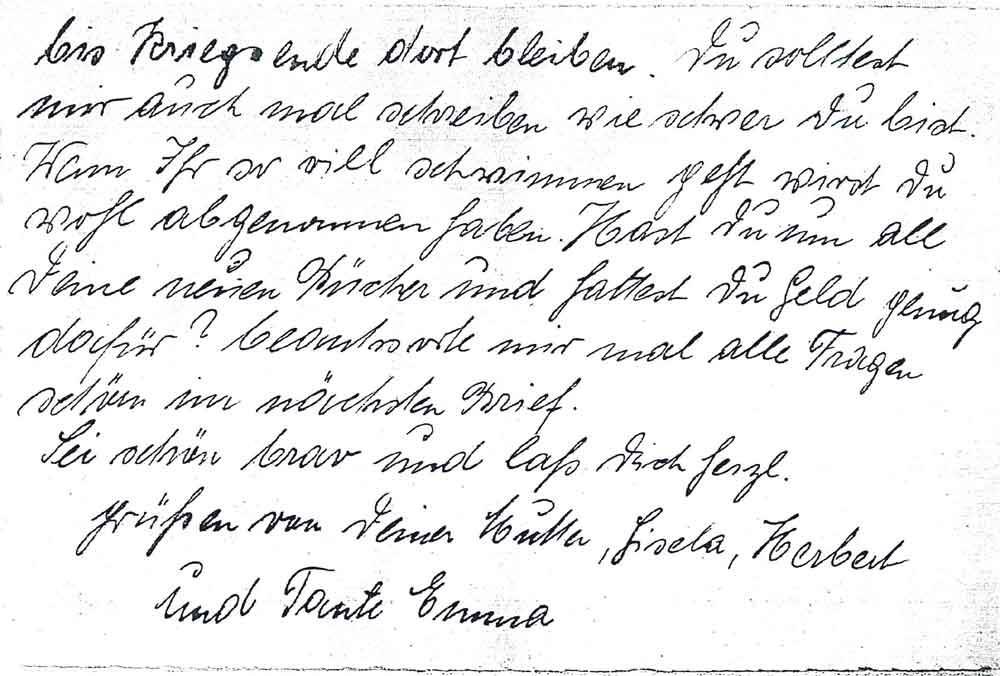 bis Kriegsende dort bleiben. Du solltest
mir auch mal schreiben wie schwer Du bist.
Wenn Ihr so vill schwimmen geht wirst Du
wohl abgenommen haben. Hast Du nun all
Deine neuen Bücher und hattest Du Geld genug
dafür? beantworte mir mal alle Fragen
schön im nächsten Brief.
Sei schön brav und laß Dich herzl.
grüßen von Deiner Mutter, Gisela, Herbert
und Tante Emma